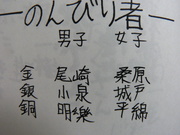 ―のんびり者―
男子 女子
金 尾崎 柔原
銀 小泉 城戸
銅 明樂 平綿